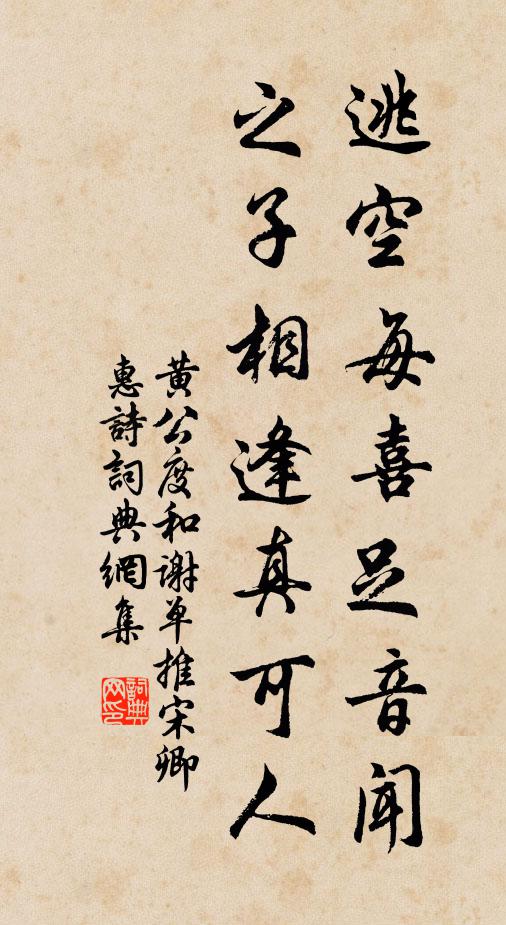 逃空每喜足音闻
之子相逢真可人
黄公度和谢单推宋卿
惠詩詞典網集
詞典网印